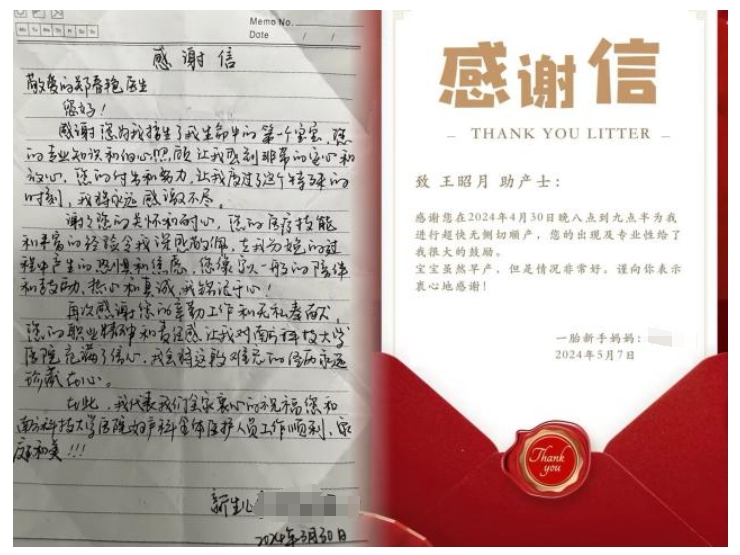 Memo No.
Date / /
Mo Tu We Th Fr Sa Su
感谢信
敬爱的郑春艳医生
您好！
感谢您为我接生了我生命中的第一个宝宝，您
的专业知识和细心照顾让我感到非常的安心和
放心，您的付出和努力，让我度过了这个特殊的
时刻，我将永远感激不尽。
谢谢您的关怀和耐心，您的医疗技能
和丰富的经验令我深感敬佩，在我分娩的过
程中产生的恐惧和焦虑，您像家人一般的陪伴
和鼓励，热心和真诚，我铭记于心！
再次感谢您的辛勤工作和无私奉献，
您的职业精神和责任感让我对南方科技大学
医院充满了信心，我会将这段难忘的经历永远
珍藏在心。
在此，我代表我们全家衷心的祝福您和
南方科技大学医院妇产科全体医护人员工作顺利，家
庭和美！！！
新生儿
2024年3月30日
感谢信
THANK YOU LITTER
致 王昭月 助产士：
感谢您在2024年4月30日晚八点到九点半为我
进行超快无侧切顺产，您的出现及专业性给了
我很大的鼓励。
宝宝虽然早产，但是情况非常好。谨向你表示
衷心地感谢！
一胎新手妈妈：
2024年5月7日
Thank
you